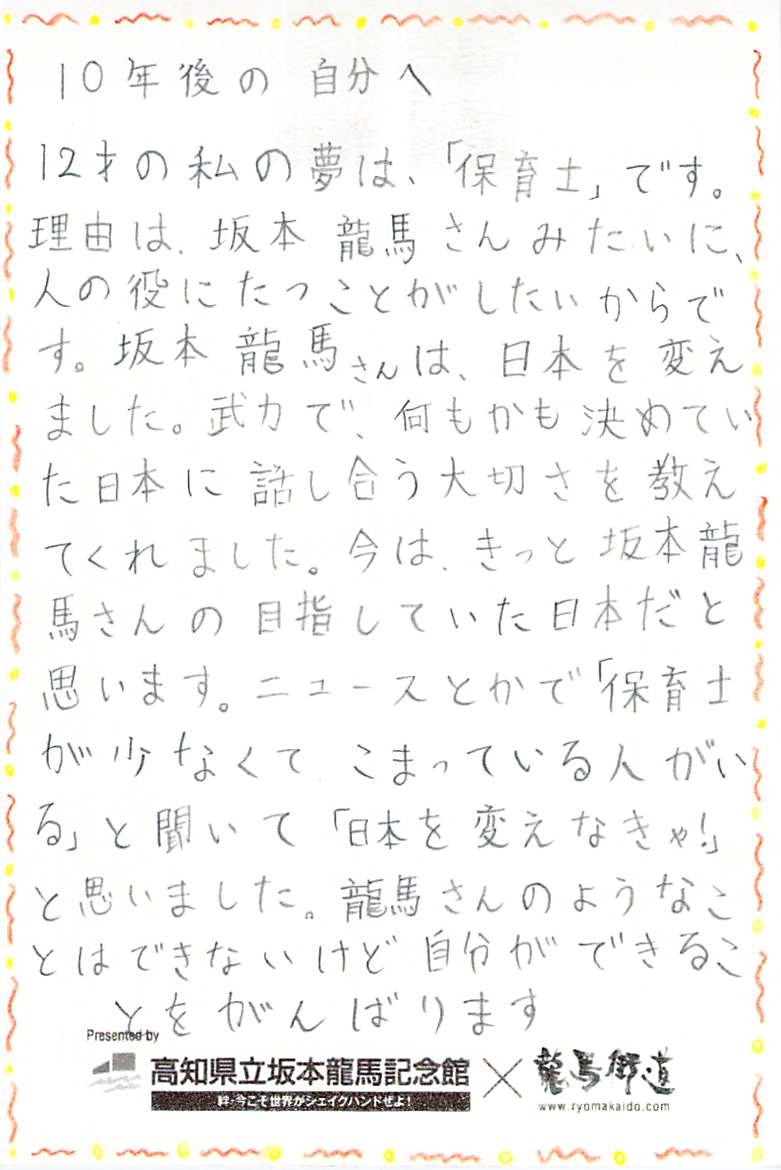 10年後の 自分へ
12才の私の夢は、「保育士」です。
理由は、坂本 龍馬さんみたいに、
人の役にたつことがしたいからで
す。坂本 龍馬さんは、日本を変え
ました。武力で、何もかも決めてい
た日本に話し合う大切さを教え
てくれました。今は、きっと坂本龍
馬さんの目指していた日本だと
思います。ニュースとかで「保育士
が少なくて こまっている人がい
る」と聞いて「日本を変えなきゃ!」
と思いました。龍馬さんのようなこ
とはできないけど自分ができるこ
とをがんばります
Presented by
高知県立坂本龍馬記念館×龍馬街道
絆・今こそ世界がシェイクハンドぜよ!
www.ryomakaido.com